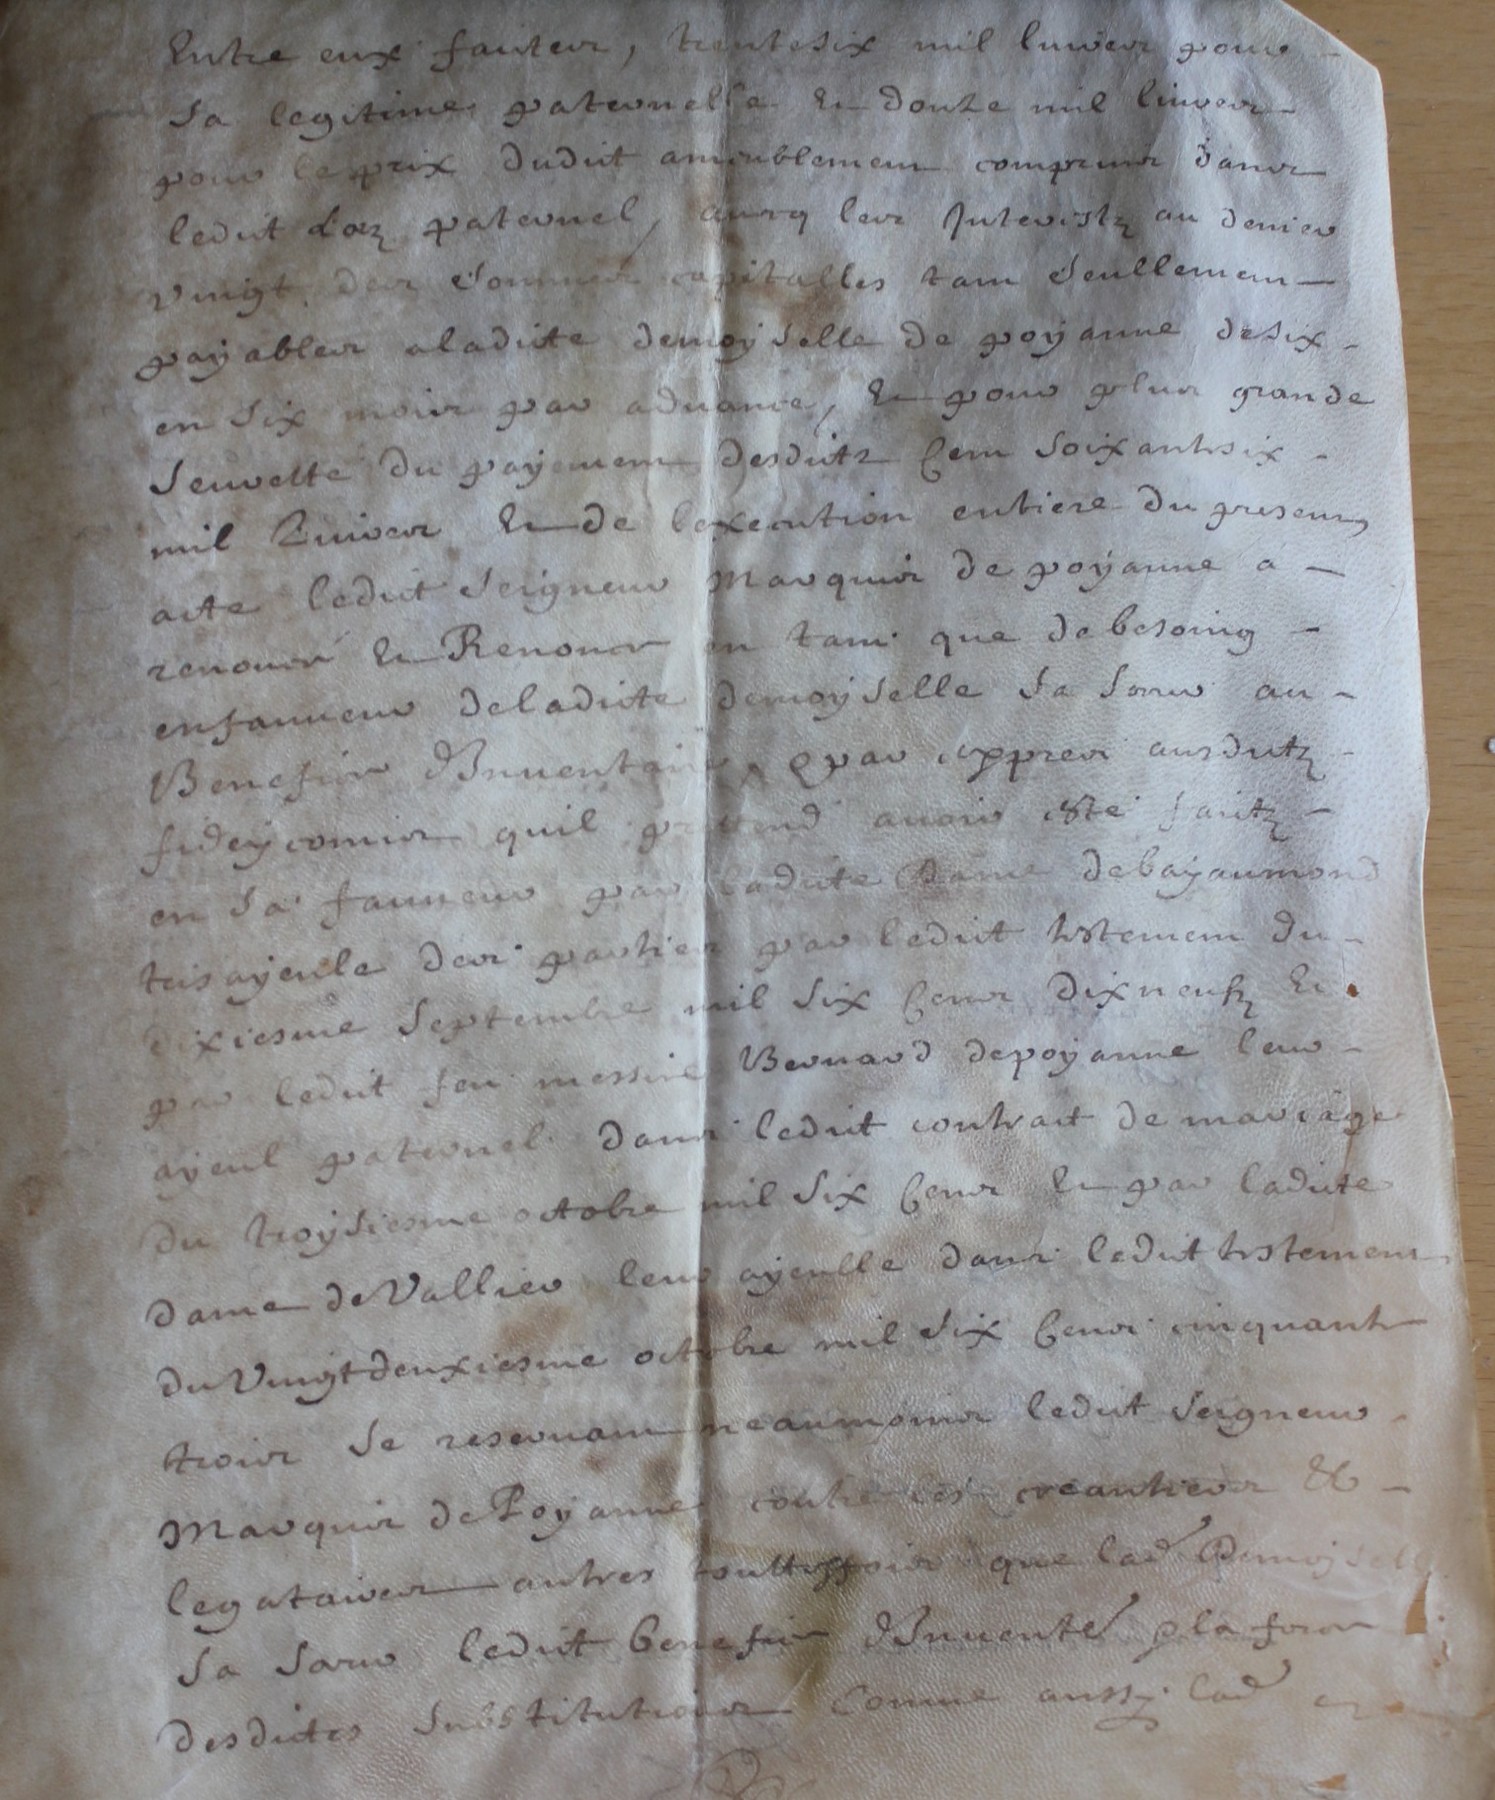 Entre eux faites, trentesix mil livres pour
sa legitime paternelle Et douze mil livres
pour le prix dudit ameublement compris dans
ledit paternel, avecq les Interestz au denier
vingt des sommes capitalles tant seullement
payables aladite demoyselle de poyanne desix
en six mois par advance, Et pour plus grande
seurette du payement desditz Cent soixantesix
mil Livres Et de lexecution entiere du present
acte ledit seigneur Marquis de poyanne a
renoncé Et Renonce en tant que de besoing
enfaueur deladite demoyselle sa soeur au
Benefice dInuentaire, & par exprés ausditz
fideycomis quil pretend auoir esté faitz
en sa faueur par ladite Dame debayaumond
bisayeule des parties par ledit testement du
dixiesme septembre mil six Cens dixneufz Et
par ledit feu messire Bernard depoyanne leur
ayeul paternel dans ledit contract de mariage
du troysiesme octobre mil six Cens Et par ladite
dame deVallier leur ayeulle dans ledit testement
du Vingtdeuxiesme octobre mil six Cens cinquante
trois se reservant neanmoins ledit seigneur
Marquis dePoyanne contre les creantiers &
legataires autres touttesfois que lad Demoyselle
sa soeur ledit benefice dInuente & la force
desdites substitutions Comme aussy lad